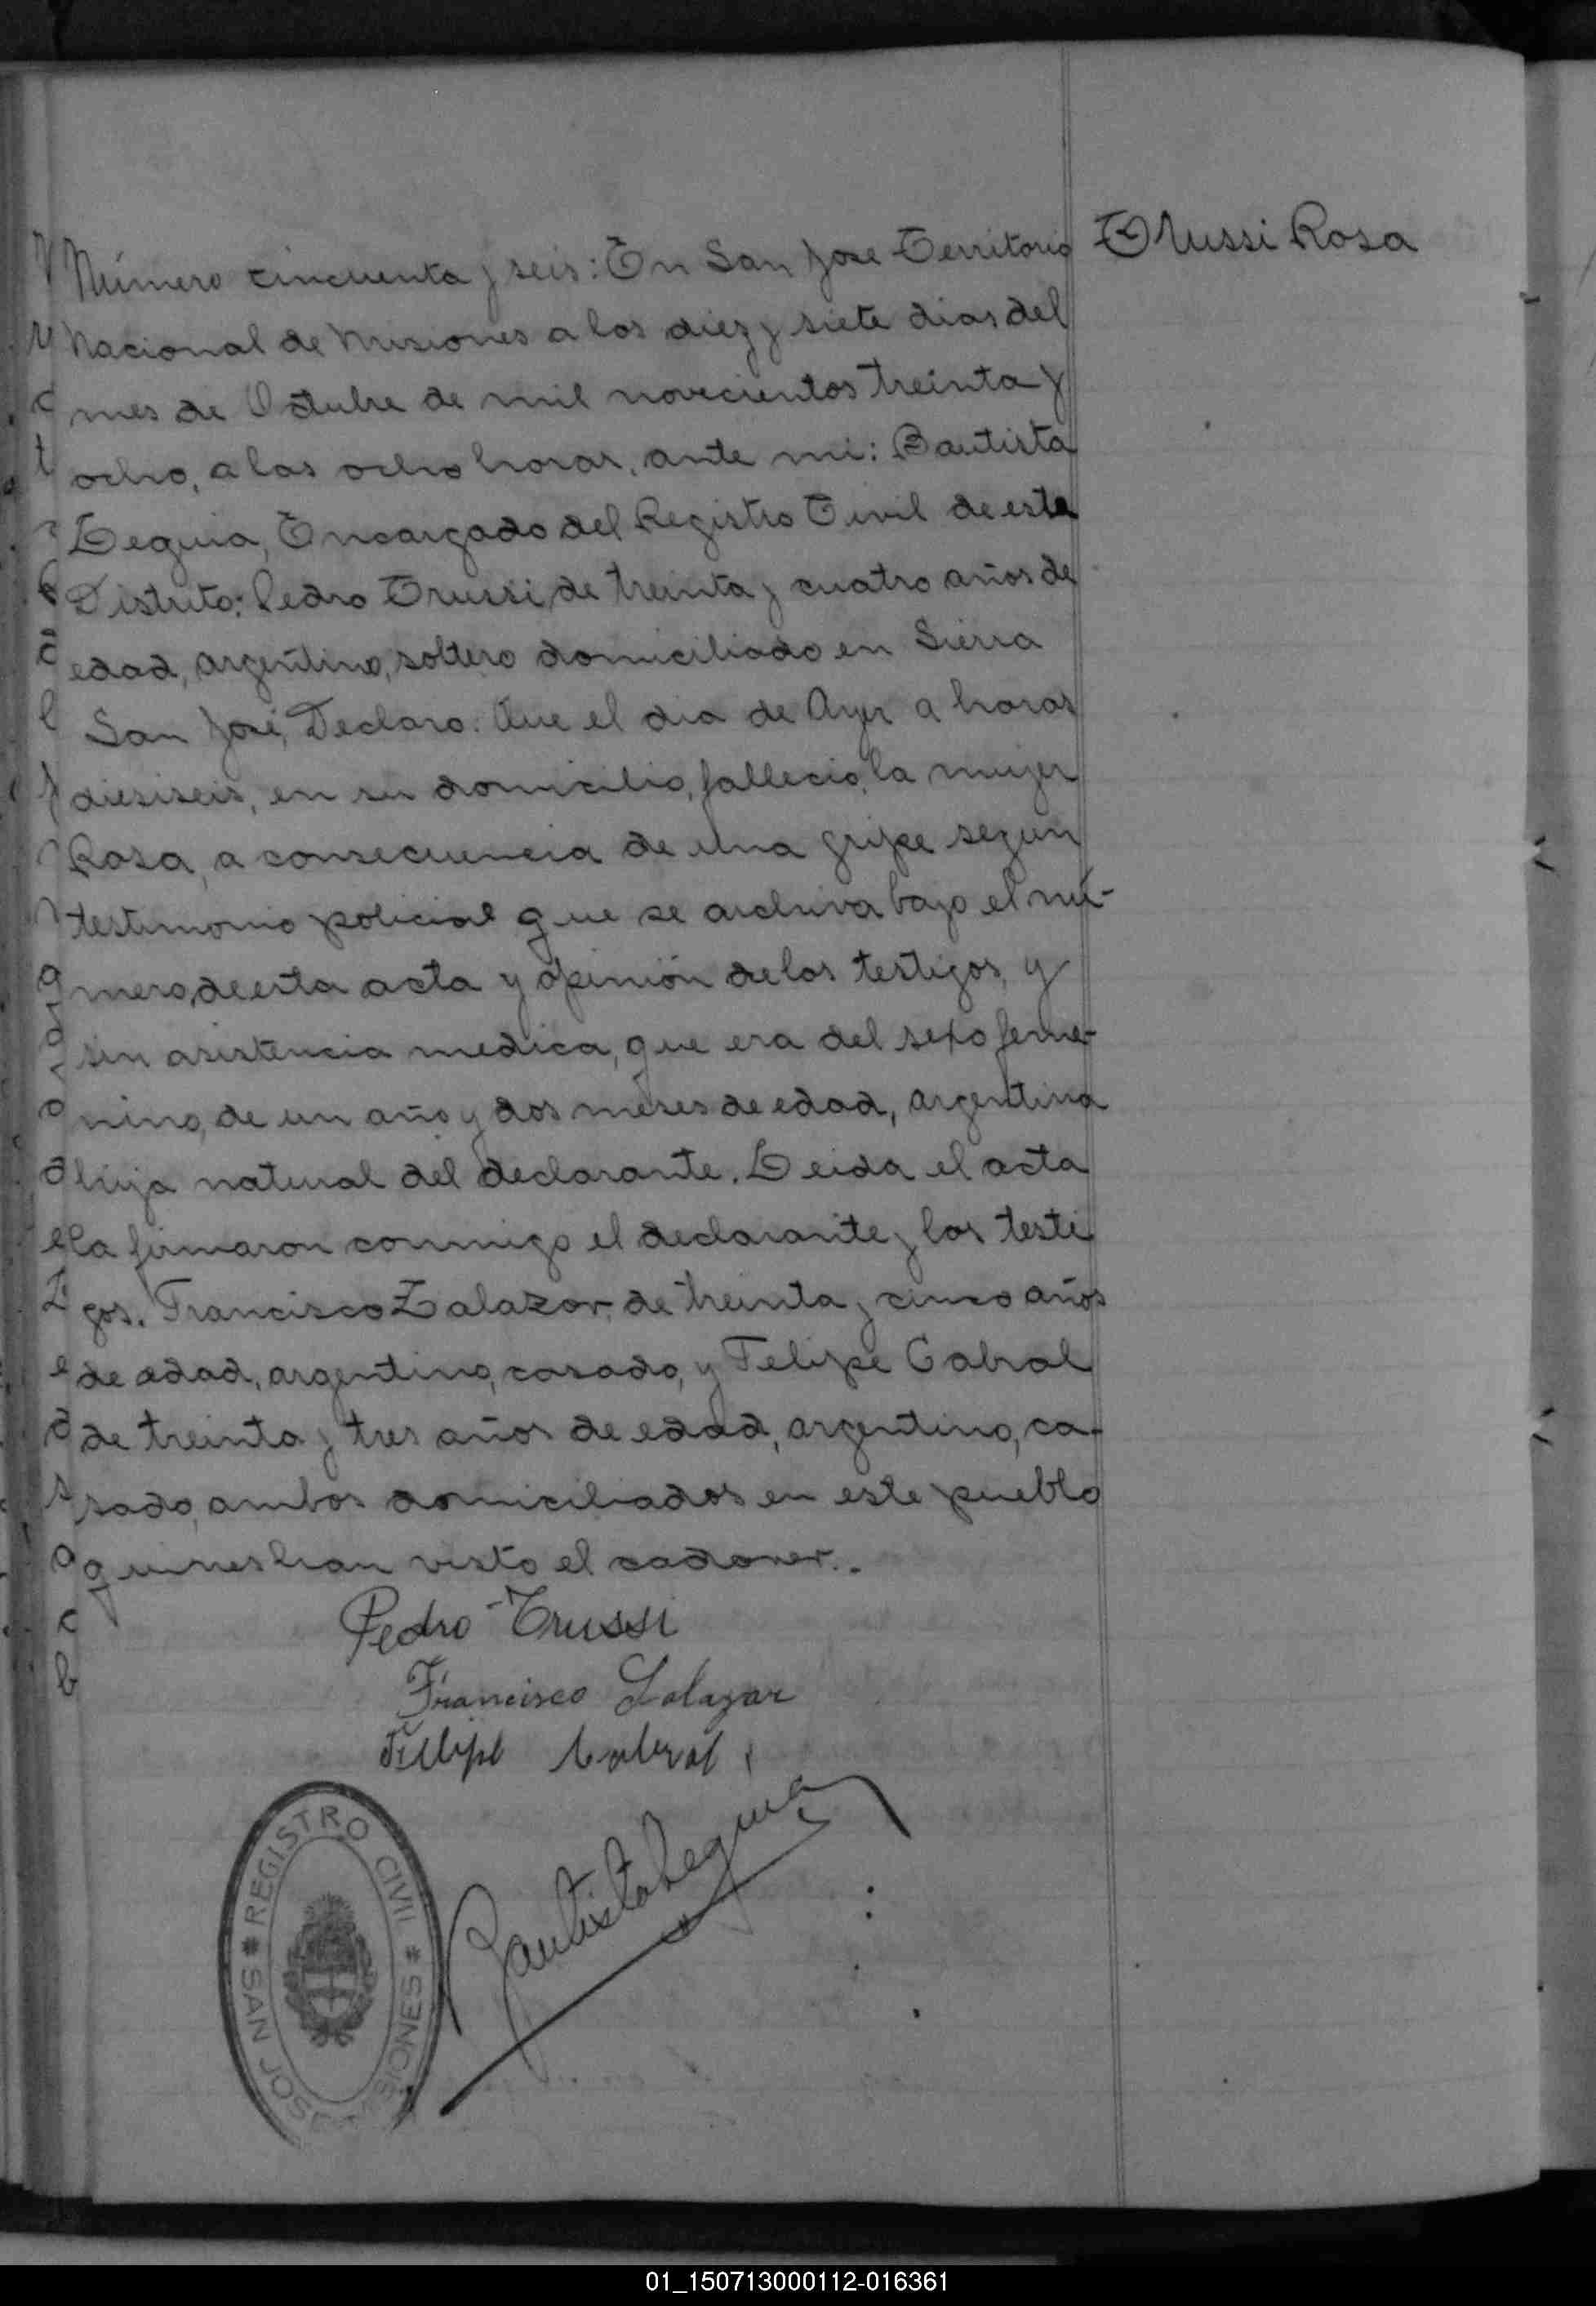 Trussi Rosa
Número cincuenta y seis: En San Jose Territorio
Nacional de Misiones a los diez y siete dias del
mes de Octubre de mil novecientos treinta y
ocho, a las ocho horas, ante mi: Bautista
Leguia, Encargado del Registro Civil de este
Distrito: Pedro Trussi, de treinta y cuatro años de
edad, argentino, soltero domiciliado en Sierra
San José, Declaro: Que el dia de Ayer a horas
diesiseis, en su domicilio, fallecio, la mujer
Rosa, a consecuencia de una gripe segun
testimonio policial que se archiva bajo el nú-
mero, de esta acta y opinión de los testigos, y
sin asistencia medica, que era del sexo feme-
nino, de un año y dos meses de edad, argentina
hija natural del declarante. Leida el acta
la firmaron conmigo el declarante y los testi
gos. Francisco Zalazar, de treinta y cinco años
de edad, argentino, casado, y Felipe Cabral
de treinta y tres años de edad, argentino, ca-
sado, ambos domiciliados en este pueblo
quines han visto el cadaver..
Pedro Trussi
Francisco Salazar
Felipe Cabral
Bautista Leguia
REGISTRO CIVIL * SAN JOSE MISIONES *
01_150713000112-016361